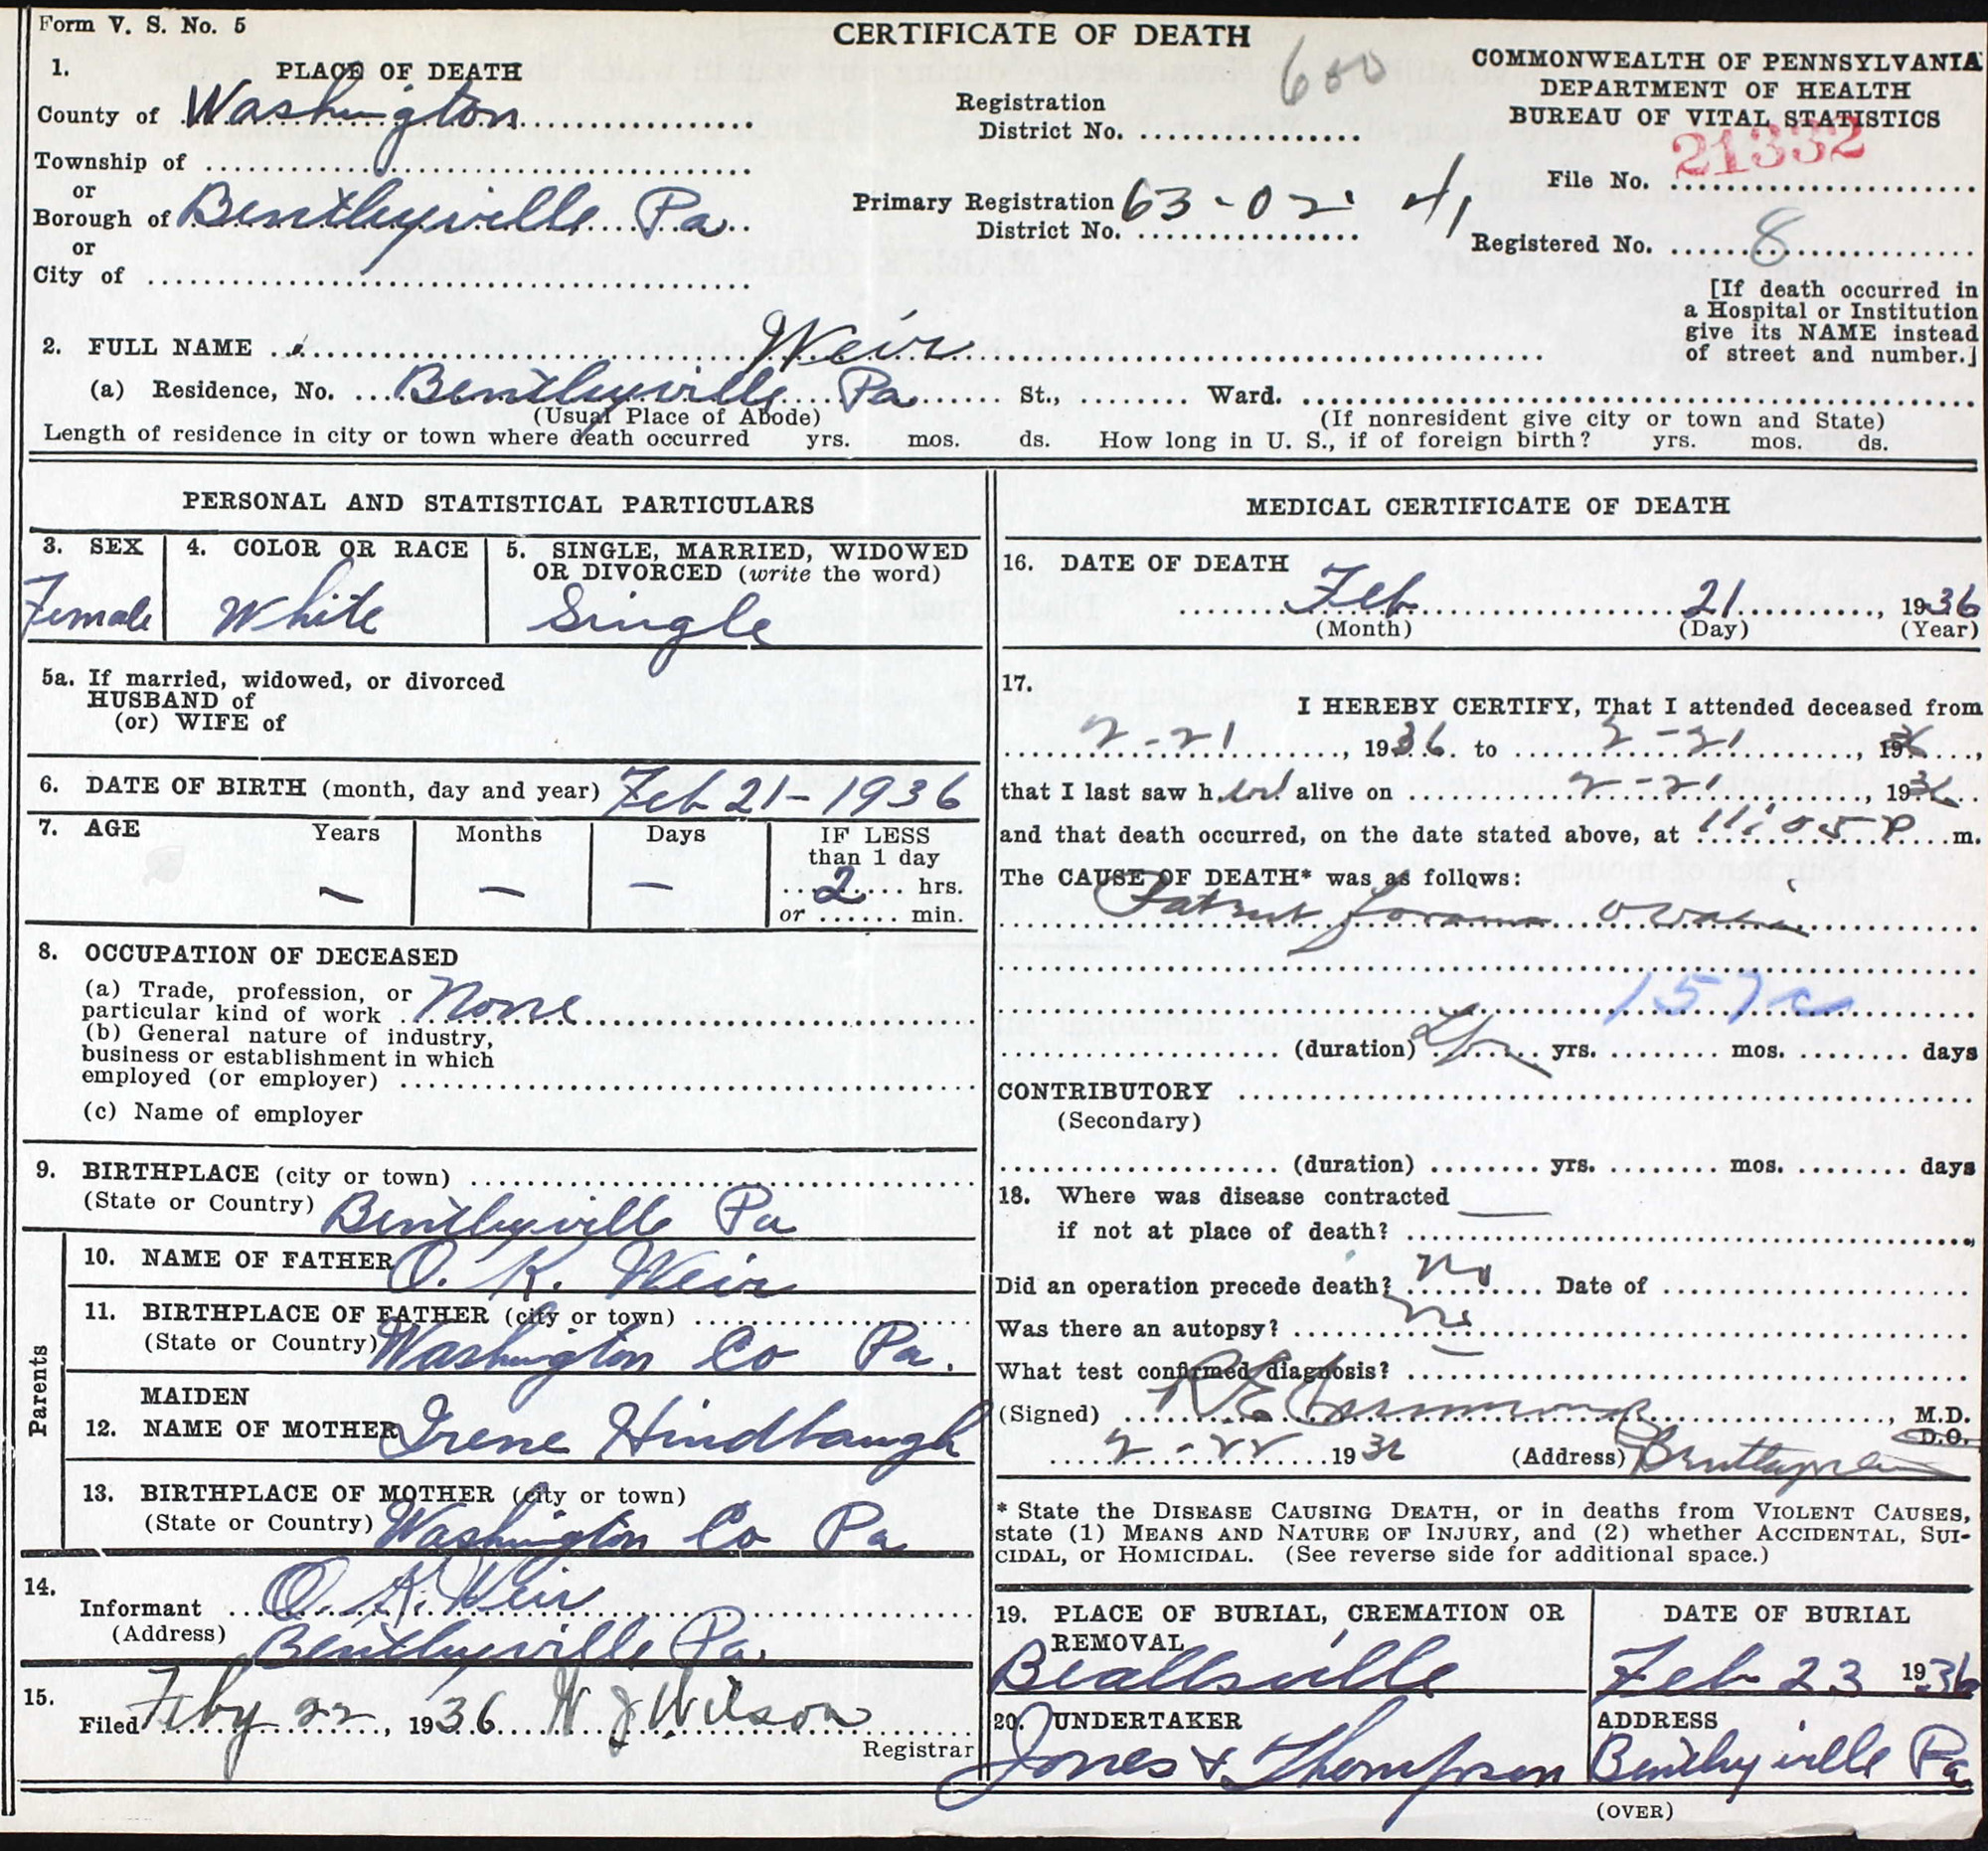 Form V. S. No. 5
CERTIFICATE OF DEATH
600
COMMONWEALTH OF PENNSYLVANIA
DEPARTMENT OF HEALTH
BUREAU OF VITAL STATISTICS
1. PLACE OF DEATH
County of Washington
Township of
or
Borough of Bentleyville Pa
or
City of
Registration
District No.
Primary Registration 63-02- 41
District No.
21332
File No.
Registered No. 8
[If death occurred in
a Hospital or Institution
give its NAME instead
of street and number.]
2. FULL NAME Weir
(a) Residence, No. Bentleyville Pa St., Ward.
(Usual Place of Abode) (If nonresident give city or town and State)
Length of residence in city or town where death occurred yrs. mos. ds. How long in U. S., if of foreign birth? yrs. mos. ds.
PERSONAL AND STATISTICAL PARTICULARS
3. SEX
Female
4. COLOR OR RACE
White
5. SINGLE, MARRIED, WIDOWED
OR DIVORCED (write the word)
Single
5a. If married, widowed, or divorced
HUSBAND of
(or) WIFE of
6. DATE OF BIRTH (month, day and year) Feb 21-1936
7. AGE Years Months Days IF LESS
than 1 day
— — — 2 hrs.
or min.
8. OCCUPATION OF DECEASED
(a) Trade, profession, or
particular kind of work None
(b) General nature of industry,
business or establishment in which
employed (or employer)
(c) Name of employer
9. BIRTHPLACE (city or town)
(State or Country) Bentleyville Pa
Parents
10. NAME OF FATHER O. K. Weir
11. BIRTHPLACE OF FATHER (city or town)
(State or Country) Washington Co Pa.
MAIDEN
12. NAME OF MOTHER Irene Hindbaugh
13. BIRTHPLACE OF MOTHER (city or town)
(State or Country) Washington Co Pa
14.
Informant O. K. Weir
(Address) Bentleyville Pa.
15.
Filed Feby 22, 1936 W J Wilson
Registrar
MEDICAL CERTIFICATE OF DEATH
16. DATE OF DEATH
Feb 21, 1936
(Month) (Day) (Year)
17.
I HEREBY CERTIFY, That I attended deceased from
2-21, 1936 to 2-21, 1936,
that I last saw her alive on 2-21, 1936
and that death occurred, on the date stated above, at 11:05 P m.
The CAUSE OF DEATH* was as follows:
Patent foramen ovale
157c
(duration) yrs. mos. days
CONTRIBUTORY
(Secondary)
(duration) yrs. mos. days
18. Where was disease contracted
if not at place of death?
Did an operation precede death? No Date of
Was there an autopsy? No
What test confirmed diagnosis?
(Signed) R E , M.D.
D.O.
2-22 1936 (Address) Bentleyville
* State the DISEASE CAUSING DEATH, or in deaths from VIOLENT CAUSES,
state (1) MEANS AND NATURE OF INJURY, and (2) whether ACCIDENTAL, SUI-
CIDAL, or HOMICIDAL. (See reverse side for additional space.)
19. PLACE OF BURIAL, CREMATION OR
REMOVAL
Beallsville
DATE OF BURIAL
Feb 23 1936
20. UNDERTAKER
Jones & Thompson
ADDRESS
Bentleyville Pa
(OVER)